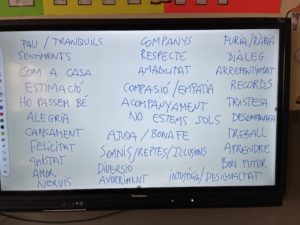 PAU / TRANQUILS
SENTIMENTS
COM A CASA
ESTIMACIÓ
HO PASSEM BÉ
ALEGRIA
CANSAMENT
FELICITAT
AMISTAT
AMOR
NERVIS
COMPANYS
RESPECTE
AMABILITAT
COMPASIÓ / EMPATIA
ACOMPANYAMENT
NO ESTEM SOLS
AJUDA / BONA FE
SOMNIS / REPTES / IL·LUSIONS
DIVERSIÓ
AVORRIMENT
FÚRIA / RÀBIA
DIÀLEG
ARREPENTIMENT
RECORDS
TRISTESA
DESCONFIANÇA
TREBALL
APRENDRE
BON FUTUR
INJUSTÍCIA / DESIGUALTAT